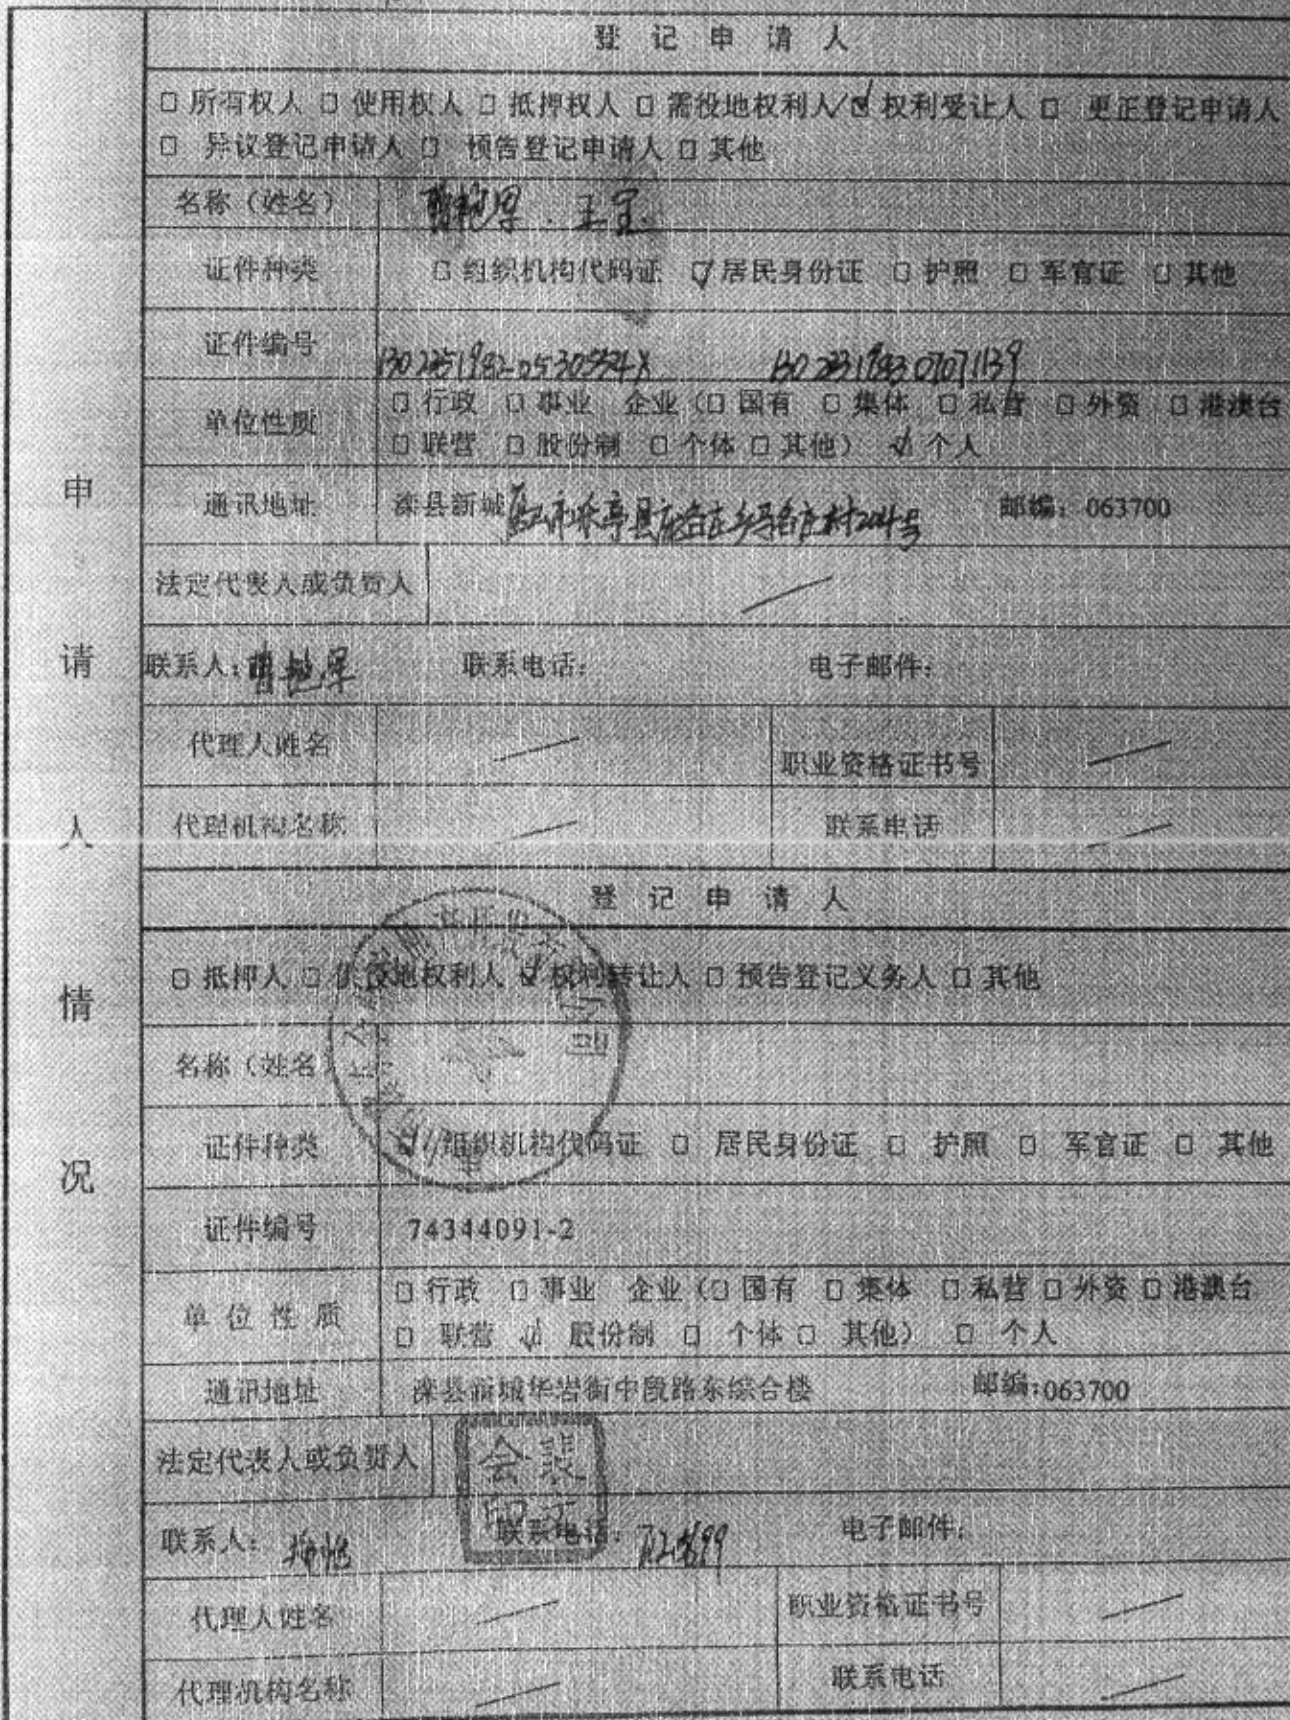 登 记 申 请 人
□ 所有权人 □ 使用权人 □ 抵押权人 □ 需役地权利人 ☑ 权利受让人 □ 更正登记申请人
□ 异议登记申请人 □ 预告登记申请人 □ 其他
名称（姓名） 王宝
证件种类 □ 组织机构代码证 ☑ 居民身份证 □ 护照 □ 军官证 □ 其他
证件编号
单位性质 □ 行政 □ 事业 企业（□ 国有 □ 集体 □ 私营 □ 外资 □ 港澳台
□ 联营 □ 股份制 □ 个体 □ 其他） ☑ 个人
通讯地址 滦县新城 邮编：063700
法定代表人或负责人
联系人： 联系电话： 电子邮件：
代理人姓名 职业资格证书号
代理机构名称 联系电话
登 记 申 请 人
□ 抵押人 □ 供役地权利人 ☑ 权利转让人 □ 预告登记义务人 □ 其他
名称（姓名）
证件种类 ☑ 组织机构代码证 □ 居民身份证 □ 护照 □ 军官证 □ 其他
证件编号 74344091-2
单 位 性 质 □ 行政 □ 事业 企业（□ 国有 □ 集体 □ 私营 □ 外资 □ 港澳台
□ 联营 ☑ 股份制 □ 个体 □ 其他） □ 个人
通讯地址 滦县新城华岩街中段路东综合楼 邮编：063700
法定代表人或负责人
联系人： 联系电话： 电子邮件：
代理人姓名 职业资格证书号
代理机构名称 联系电话
申请人情况